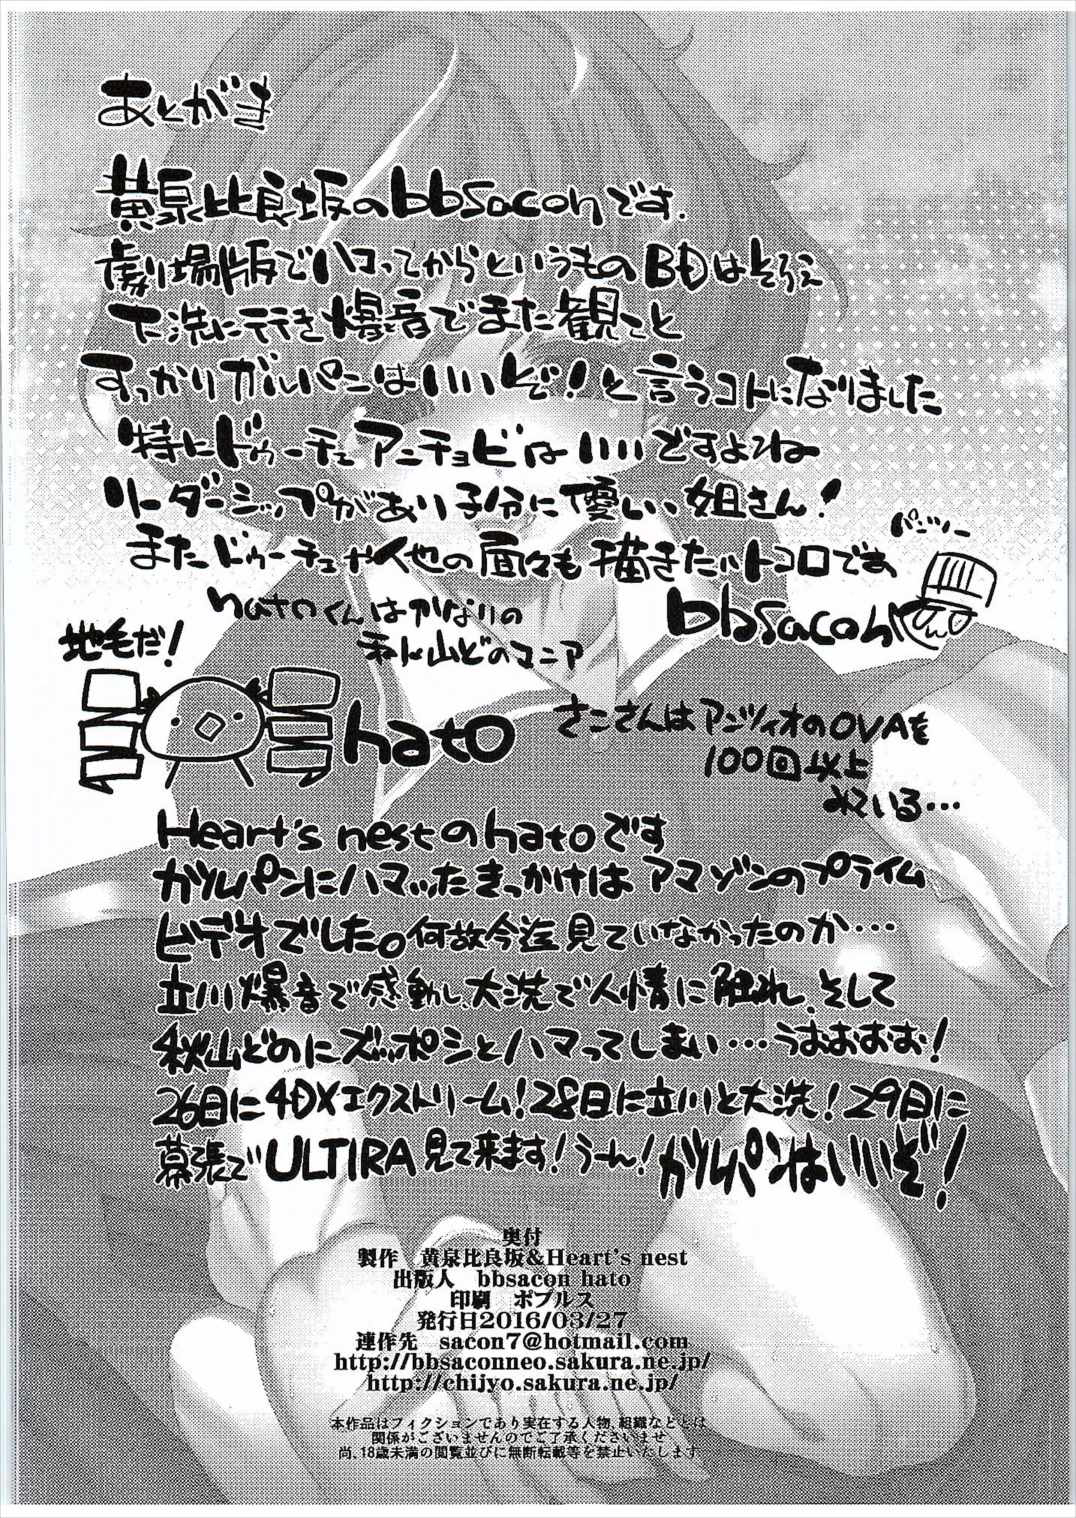 あとがき
黄泉比良坂のbbsaconです.
劇場版でハマってからというものBDはそろえ
大洗に行き爆音でまた観てと
すっかりガルパンはいいぞ!と言うコトになりました
特にドゥーチェアンチョビはいいですよね
リーダーシップがあり子分に優しい、姐さん!
またドゥーチェや他の面々も描きたいトコロです
パンツァー
bbsacon
hatoくんはかなりの
秋山どのマニア
地毛だ!
hato
さこさんはアンツィオのOVAを
100回以上
みている…
Heart's nestのhatoです
ガルパンにハマッたきっかけはアマゾンのプライム
ビデオでした。何故今迄見ていなかったのか…
立川爆音で感動し、大洗で人情に触れ、そして
秋山どのにズッポシとハマってしまい…うおおおお!
26日に4DXエクストリーム!28日に立川と大洗!29日に
幕張でULTIRA見て来ます!うーん!ガルパンはいいぞ!
奥付
製作　黄泉比良坂&Heart's nest
出版人　bbsacon hato
印刷　ポプルス
発行日2016/03/27
連作先　sacon7@hotmail.com
http://bbsaconneo.sakura.ne.jp/
http://chijyo.sakura.ne.jp/
本作品はフィクションであり実在する人物、組織などとは
関係がございませんのでご了承くださいませ
尚、18歳未満の閲覧並びに無断転載等を禁止いたします